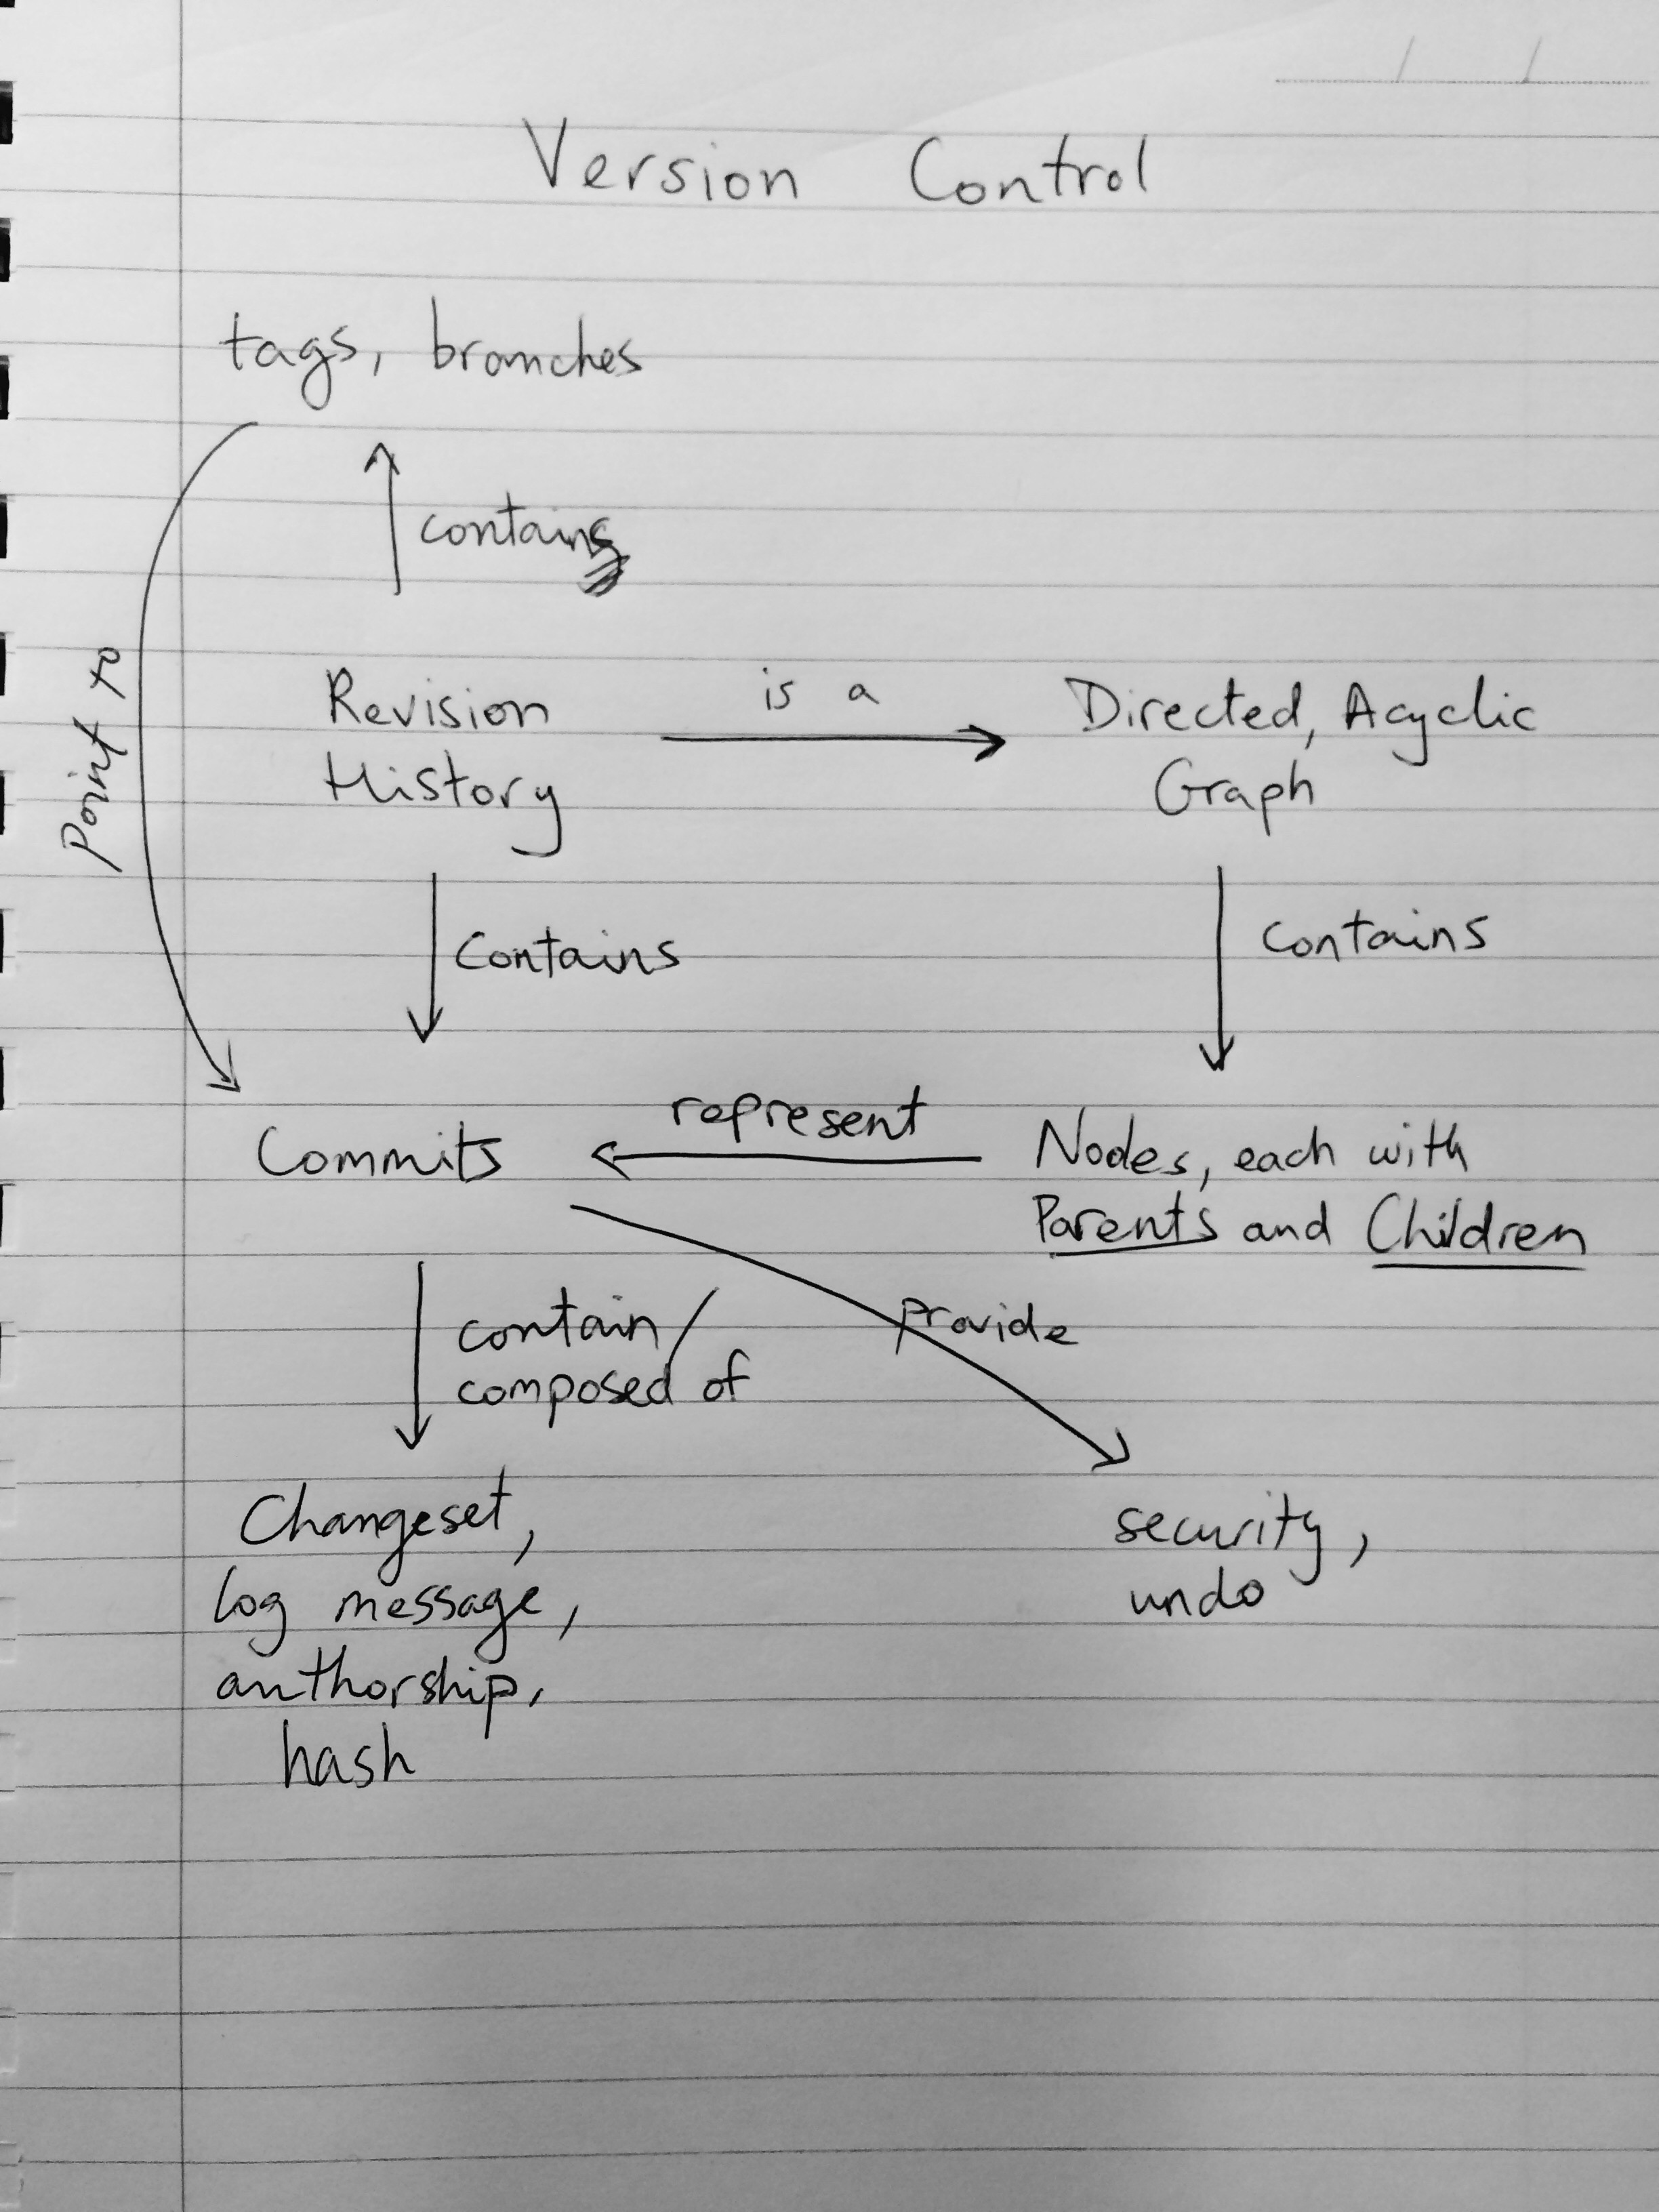 Version Control
tags, branches
contains
Point to
Revision
History
is a
Directed, Acyclic
Graph
Contains
contains
Commits
represent
Nodes, each with
Parents and Children
contain/
composed of
provide
Changeset,
log message,
authorship,
hash
security,
undo